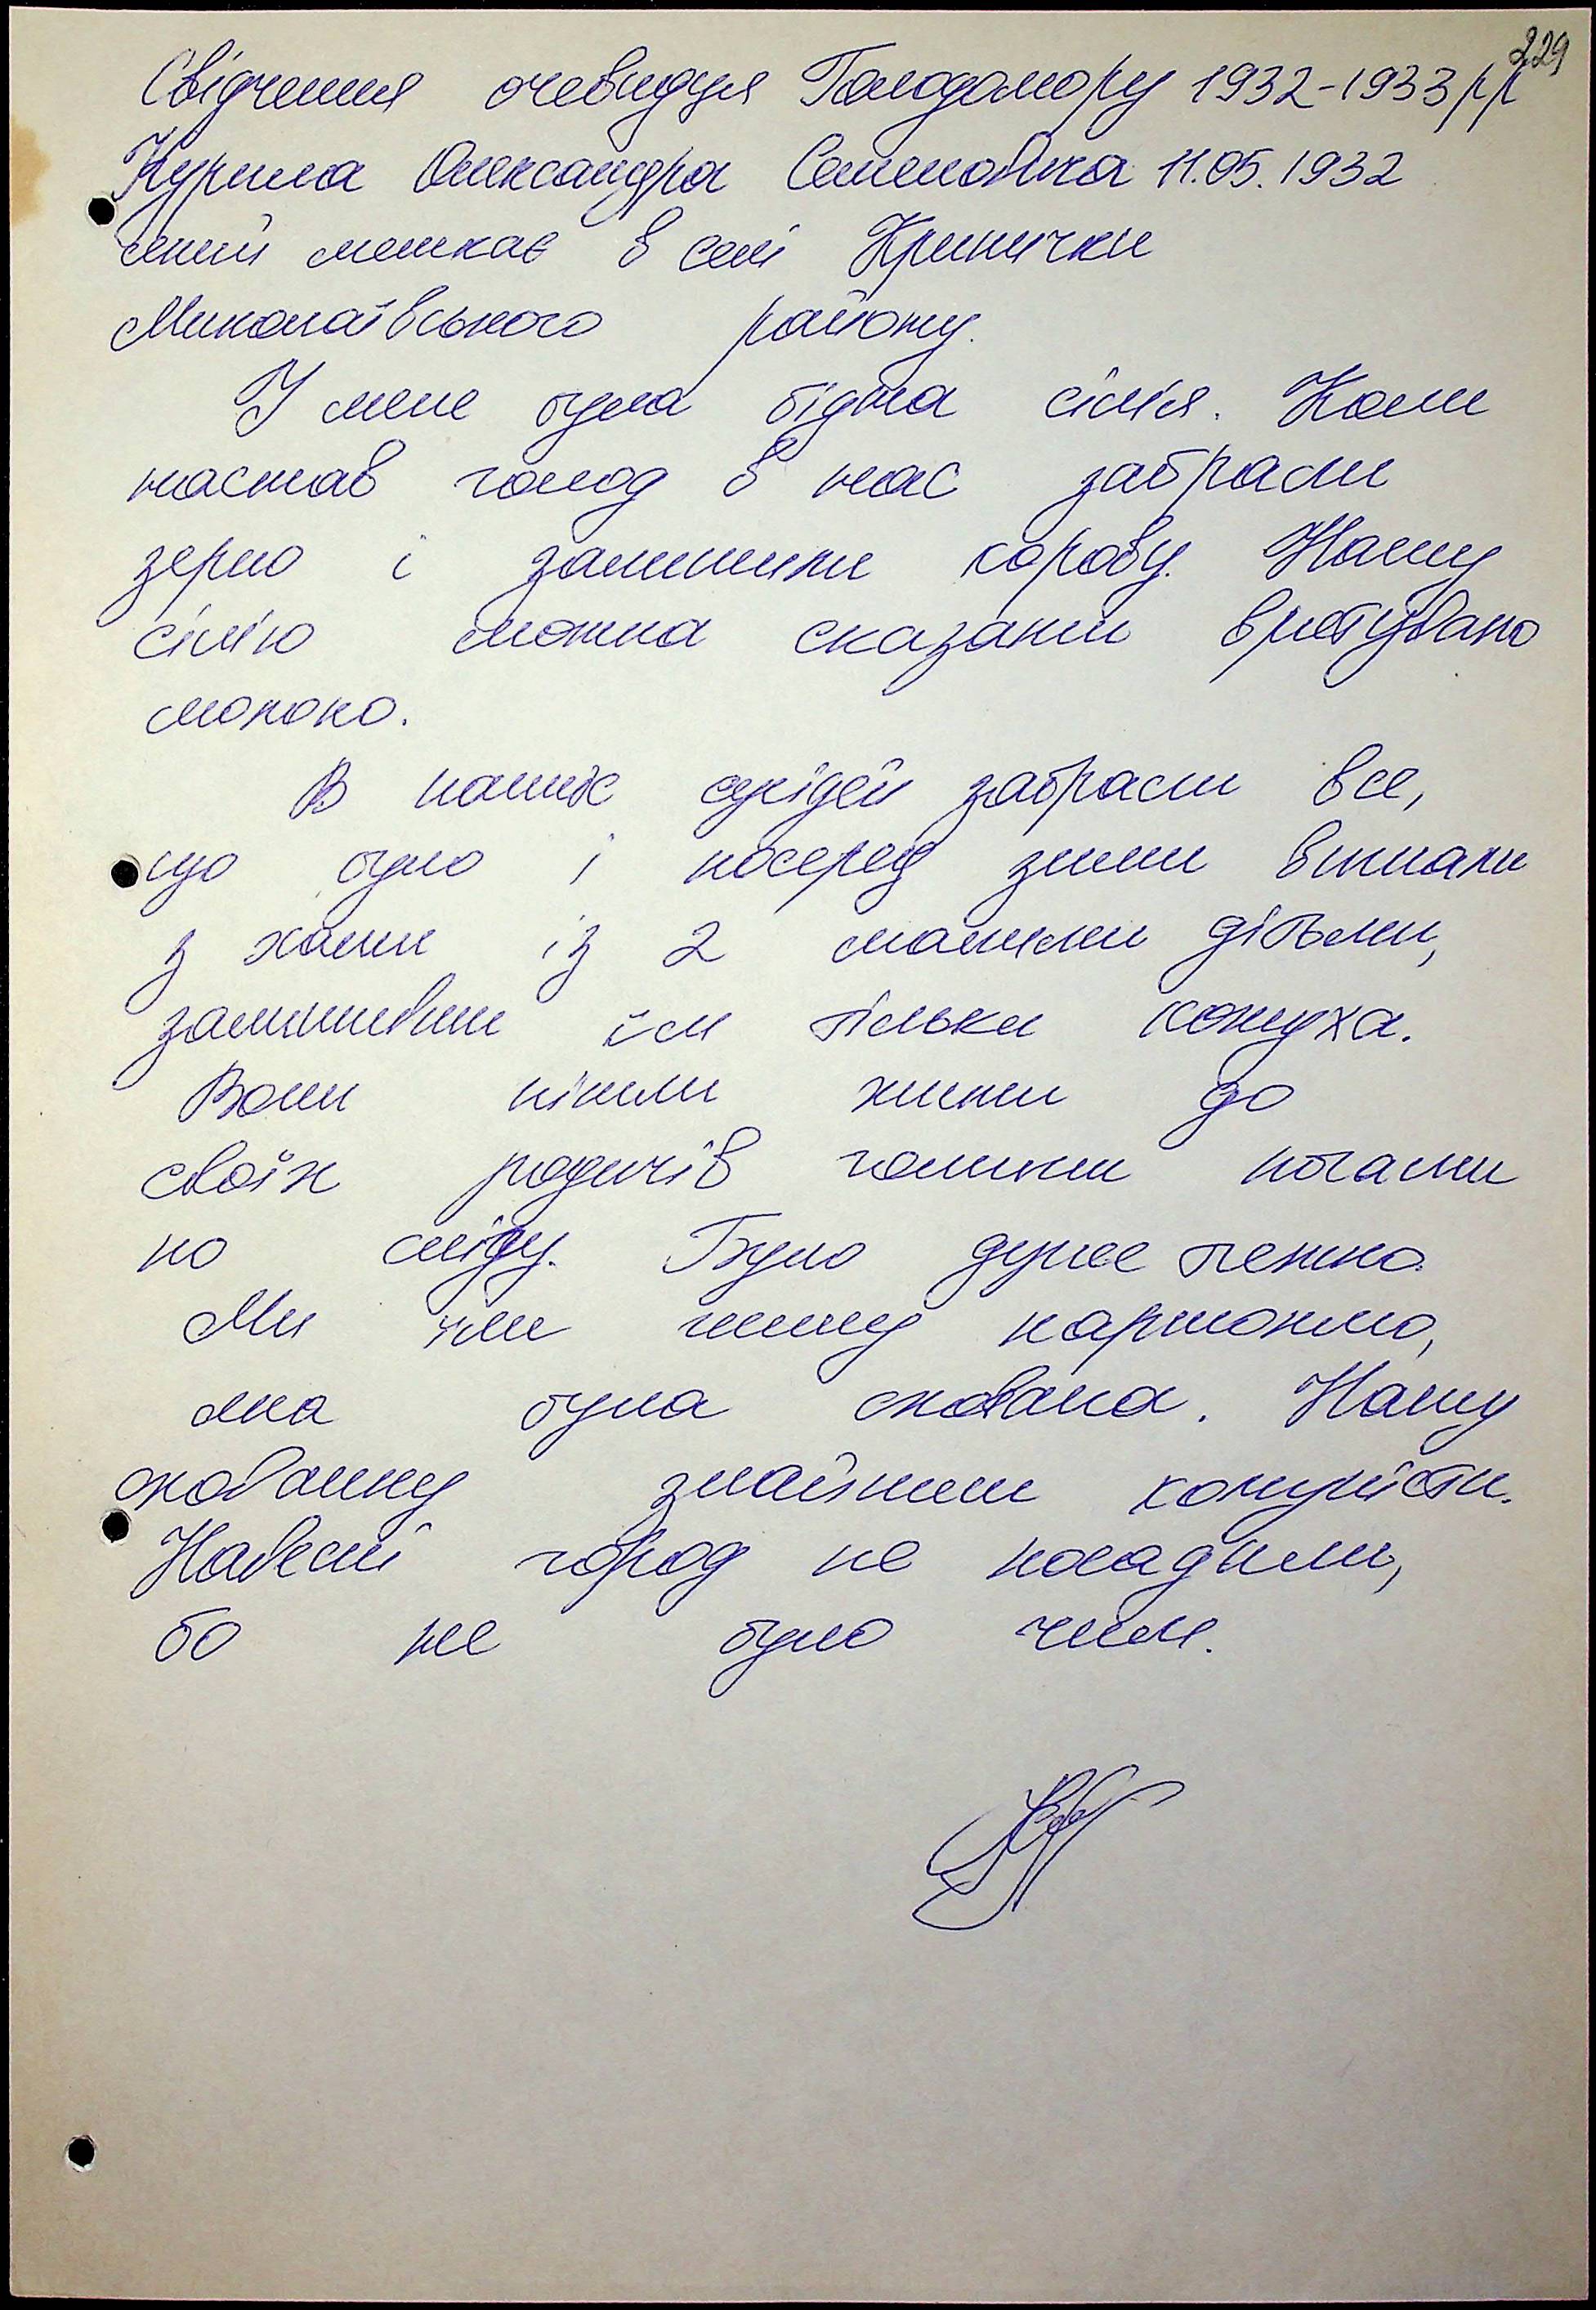 229
Свідчення очевидця Голодомору 1932-1933 рр
Курила Олександра Семеновича 11.05.1932
який мешкає в селі Кринички
Миколаївського району.
У мене була бідна сім'я. Коли
настав голод в нас забрали
зерно і залишили корову. Нашу
сім'ю можна сказати врятувало
молоко.
В наших сусідей забрали все,
що було і посеред зими вигнали
з хати із 2 малими дітьми,
залишивши їм тільки кожуха.
Вони пішли жити до
своїх родичів голими ногами
по сніду. Було дуже тяжко.
Ми їли гнилу картоплю,
яка була схована. Нашу
схованку знайшли комуністи.
Навесні город не посадили,
бо не було чим.